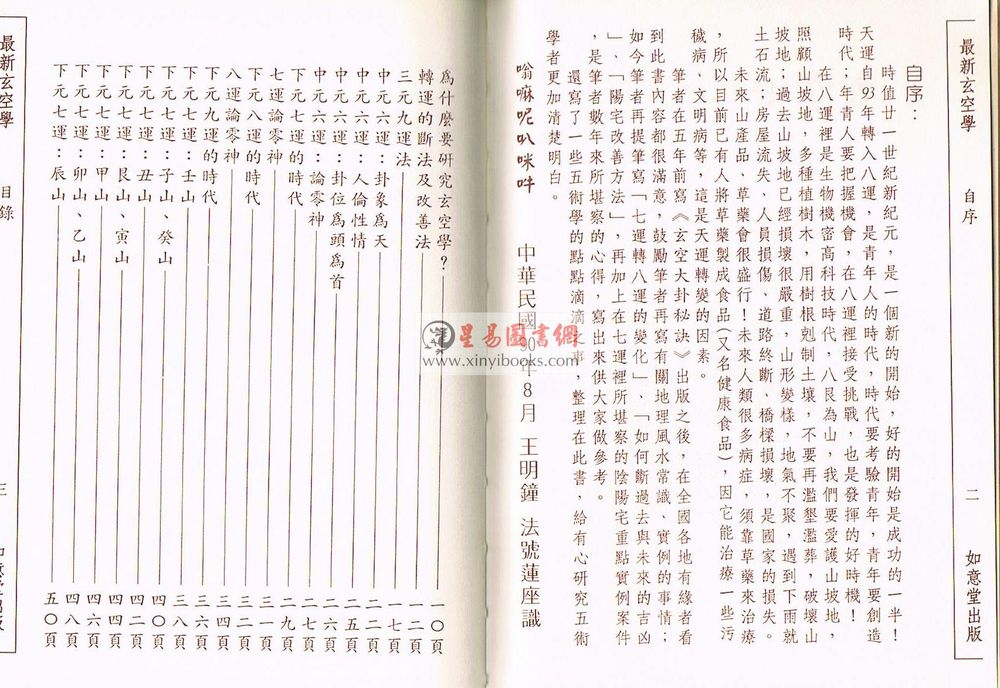 最新玄空學
自序
二
如意堂出版
自序：
時值廿一世紀新紀元，是一個新的開始，好的開始是成功的一半！
天運自93年轉入八運，是青年人的時代，時代要考驗青年，青年要創造
時代；年青人要把握機會，在八運裡接受挑戰，也是發揮的好時機！
在八運裡是生物機密高科技時代，八艮為山，我們要愛護山坡地，
照顧山坡地，多種植樹木，用樹根剋制土壤，不要再濫墾濫葬，破壞山
坡地；過去山坡地已經損壞很嚴重，山形變樣，地氣不聚，遇到下雨就
土石流；房屋流失、人員損傷、道路終斷、橋樑損壞，是國家的損失。
未來山產品、草藥會很盛行！未來人類很多病症，須靠草藥來治療
，所以目前已有人將草藥製成食品（又名健康食品），因它能治療一些污
穢病、文明病等，這是天運轉變的因素。
筆者在五年前寫《玄空大卦秘訣》出版之後，在全國各地有緣者看
到此書內容都很滿意，鼓勵筆者再寫有關地理風水常識、實例的事情；
如今筆者再提筆寫「七運轉八運的變化」、「如何斷過去與未來的吉凶
」、「陽宅改善方法」，再加上在七運裡所堪察的陰陽宅重點實例案件
，是筆者數年來所堪察的心得，寫出來供大家做參考。
還寫了一些五術學的點點滴滴之事，整理在此書，給有心研究五術
學者更加清楚明白。
嗡嘛呢叭咪吽
中華民國90年8月 王明鐘 法號蓮座識
星易圖書網
www.xinyibooks.com
為什麼要研究玄空學？ 一０頁
轉運的斷法及改善法 一二頁
三元九運法 一七頁
中元六運：卦象為天 二二頁
中元六運：人倫性情 二五頁
中元六運：卦位為頭為首 二六頁
中元六運：論零神 二九頁
下元七運的時代 二八頁
七運論零神 三一頁
下元八運的時代 三二頁
八運論零神 三四頁
下元九運的時代 三六頁
下元七運：壬山 三八頁
下元七運：子山、癸山 四０頁
下元七運：丑山 四二頁
下元七運：艮山、寅山 四四頁
下元七運：甲山 四六頁
下元七運：卯山、乙山 四八頁
下元七運：辰山 五０頁
最新玄空學
目錄
三